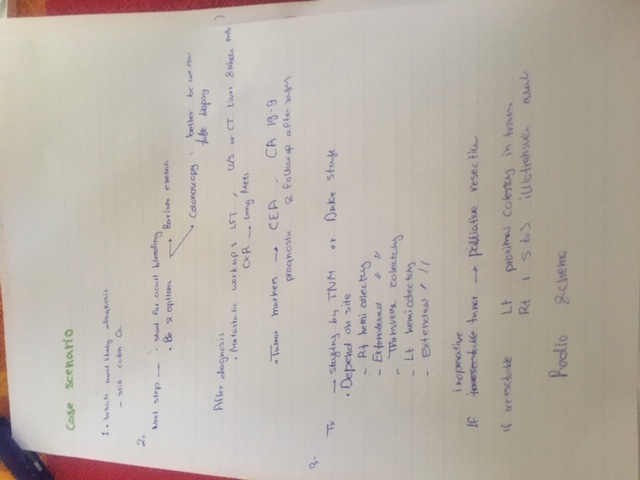 Case scenario
1. Whats most likely diagnosis
- colon Ca
2. Next step → stool for occult bleeding
• 2 options → Barium enema
→ Colonoscopy : better bc we can
take biopsy
After diagnosis
• Metastatic workups LFT, U/S or CT Liver
CXR → lung Mets
• Tumor marker → CEA, CA 19-9
prognostic & followup after
3. Tx → staging by TNM or Duke stage
• Depend on site
- Rt hemicolectomy
- Extended " "
- Transverse colectomy
- Lt hemicolectomy
- Extended " "
inoperative
If tumor → Palliative resection
If Lt proximal in tran
Rt
Radio & chemo